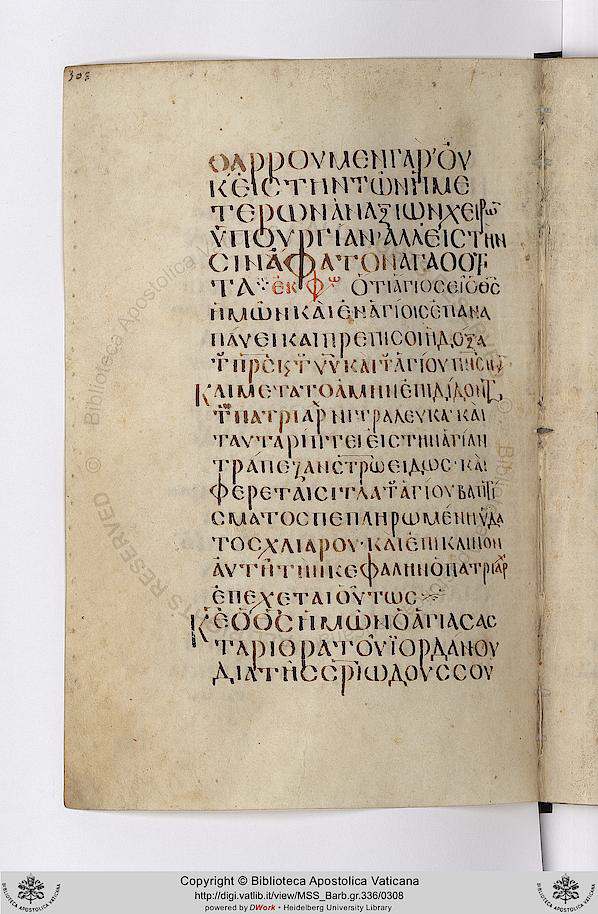 303
ΘΑΡΡΟΥΜΕΝ ΓΑΡ ΟΥ
Κ ΕΙΣ ΤΗΝ ΤΩΝ ΗΜΕ
ΤΕΡΩΝ ΑΝΑΞΙΩΝ ΧΕΙΡΩ
ΫΠΟΥΡΓΙΑΝ ΑΛΛ ΕΙΣ ΤΗΝ
ΣΙΝ ΑΦΑΤΟΝ ΑΓΑΘΟΤ
ΤΑ ΕΚΦΩ ΟΤΙ ΑΓΙΟΣ ΕΙ Ο ΘΣ
ΗΜΩΝ ΚΑΙ ΕΝ ΑΓΙΟΙΣ ΕΠΑΝΑ
ΠΑΥΕΙ ΚΑΙ ΠΡΕΠΙ ΣΟΙ Η ΔΟΞΑ
ΚΑΙ ΜΕΤΑ ΤΟ ΑΜΗΝ ΕΠΙΔΙΔΟΝΤ
ΠΑΤΡΙΑΡ ΜΙΤΡΑ ΛΕΥΚΑ ΚΑΙ
ΤΑΥΤΑ ΡΙΠΤΕΙ ΕΙΣ ΤΗΝ ΑΓΙΑΝ
ΤΡΑΠΕΖΑΝ ΣΤΡΩΕΙΔΩΣ ΚΑΙ
ΦΕΡΕΤΑΙ ΣΙΤΛΑ Τ ΑΓΙΟΥ ΒΑΠΤΙ
ΣΜΑΤΟΣ ΠΕΠΛΗΡΩΜΕΝΗ ΫΔΑ
ΤΟΣ ΧΛΙΑΡΟΥ ΚΑΙ ΕΠΙΚΛΙΝΩΝ
ΑΥΤΗ ΤΗΝ ΚΕΦΑΛΗΝ Ο ΠΑΤΡΙΑΡ
ΕΠΕΧΕΤΑΙ ΟΥΤΩΣ
ΚΕ Ο ΘΣ ΗΜΩΝ Ο ΑΓΙΑΣΑΣ
ΤΑ ΡΙΘΡΑ ΤΟΥ ΪΟΡΔΑΝΟΥ
ΔΙΑ ΤΗΣ ΣΡΙΩΔΟΥΣ ΣΟΥ
© Biblioteca Apostolica Vaticana
RIGHTS RESERVED
Copyright © Biblioteca Apostolica Vaticana
http://digi.vatlib.it/view/MSS_Barb.gr.336/0308
powered by DWork - Heidelberg University Library